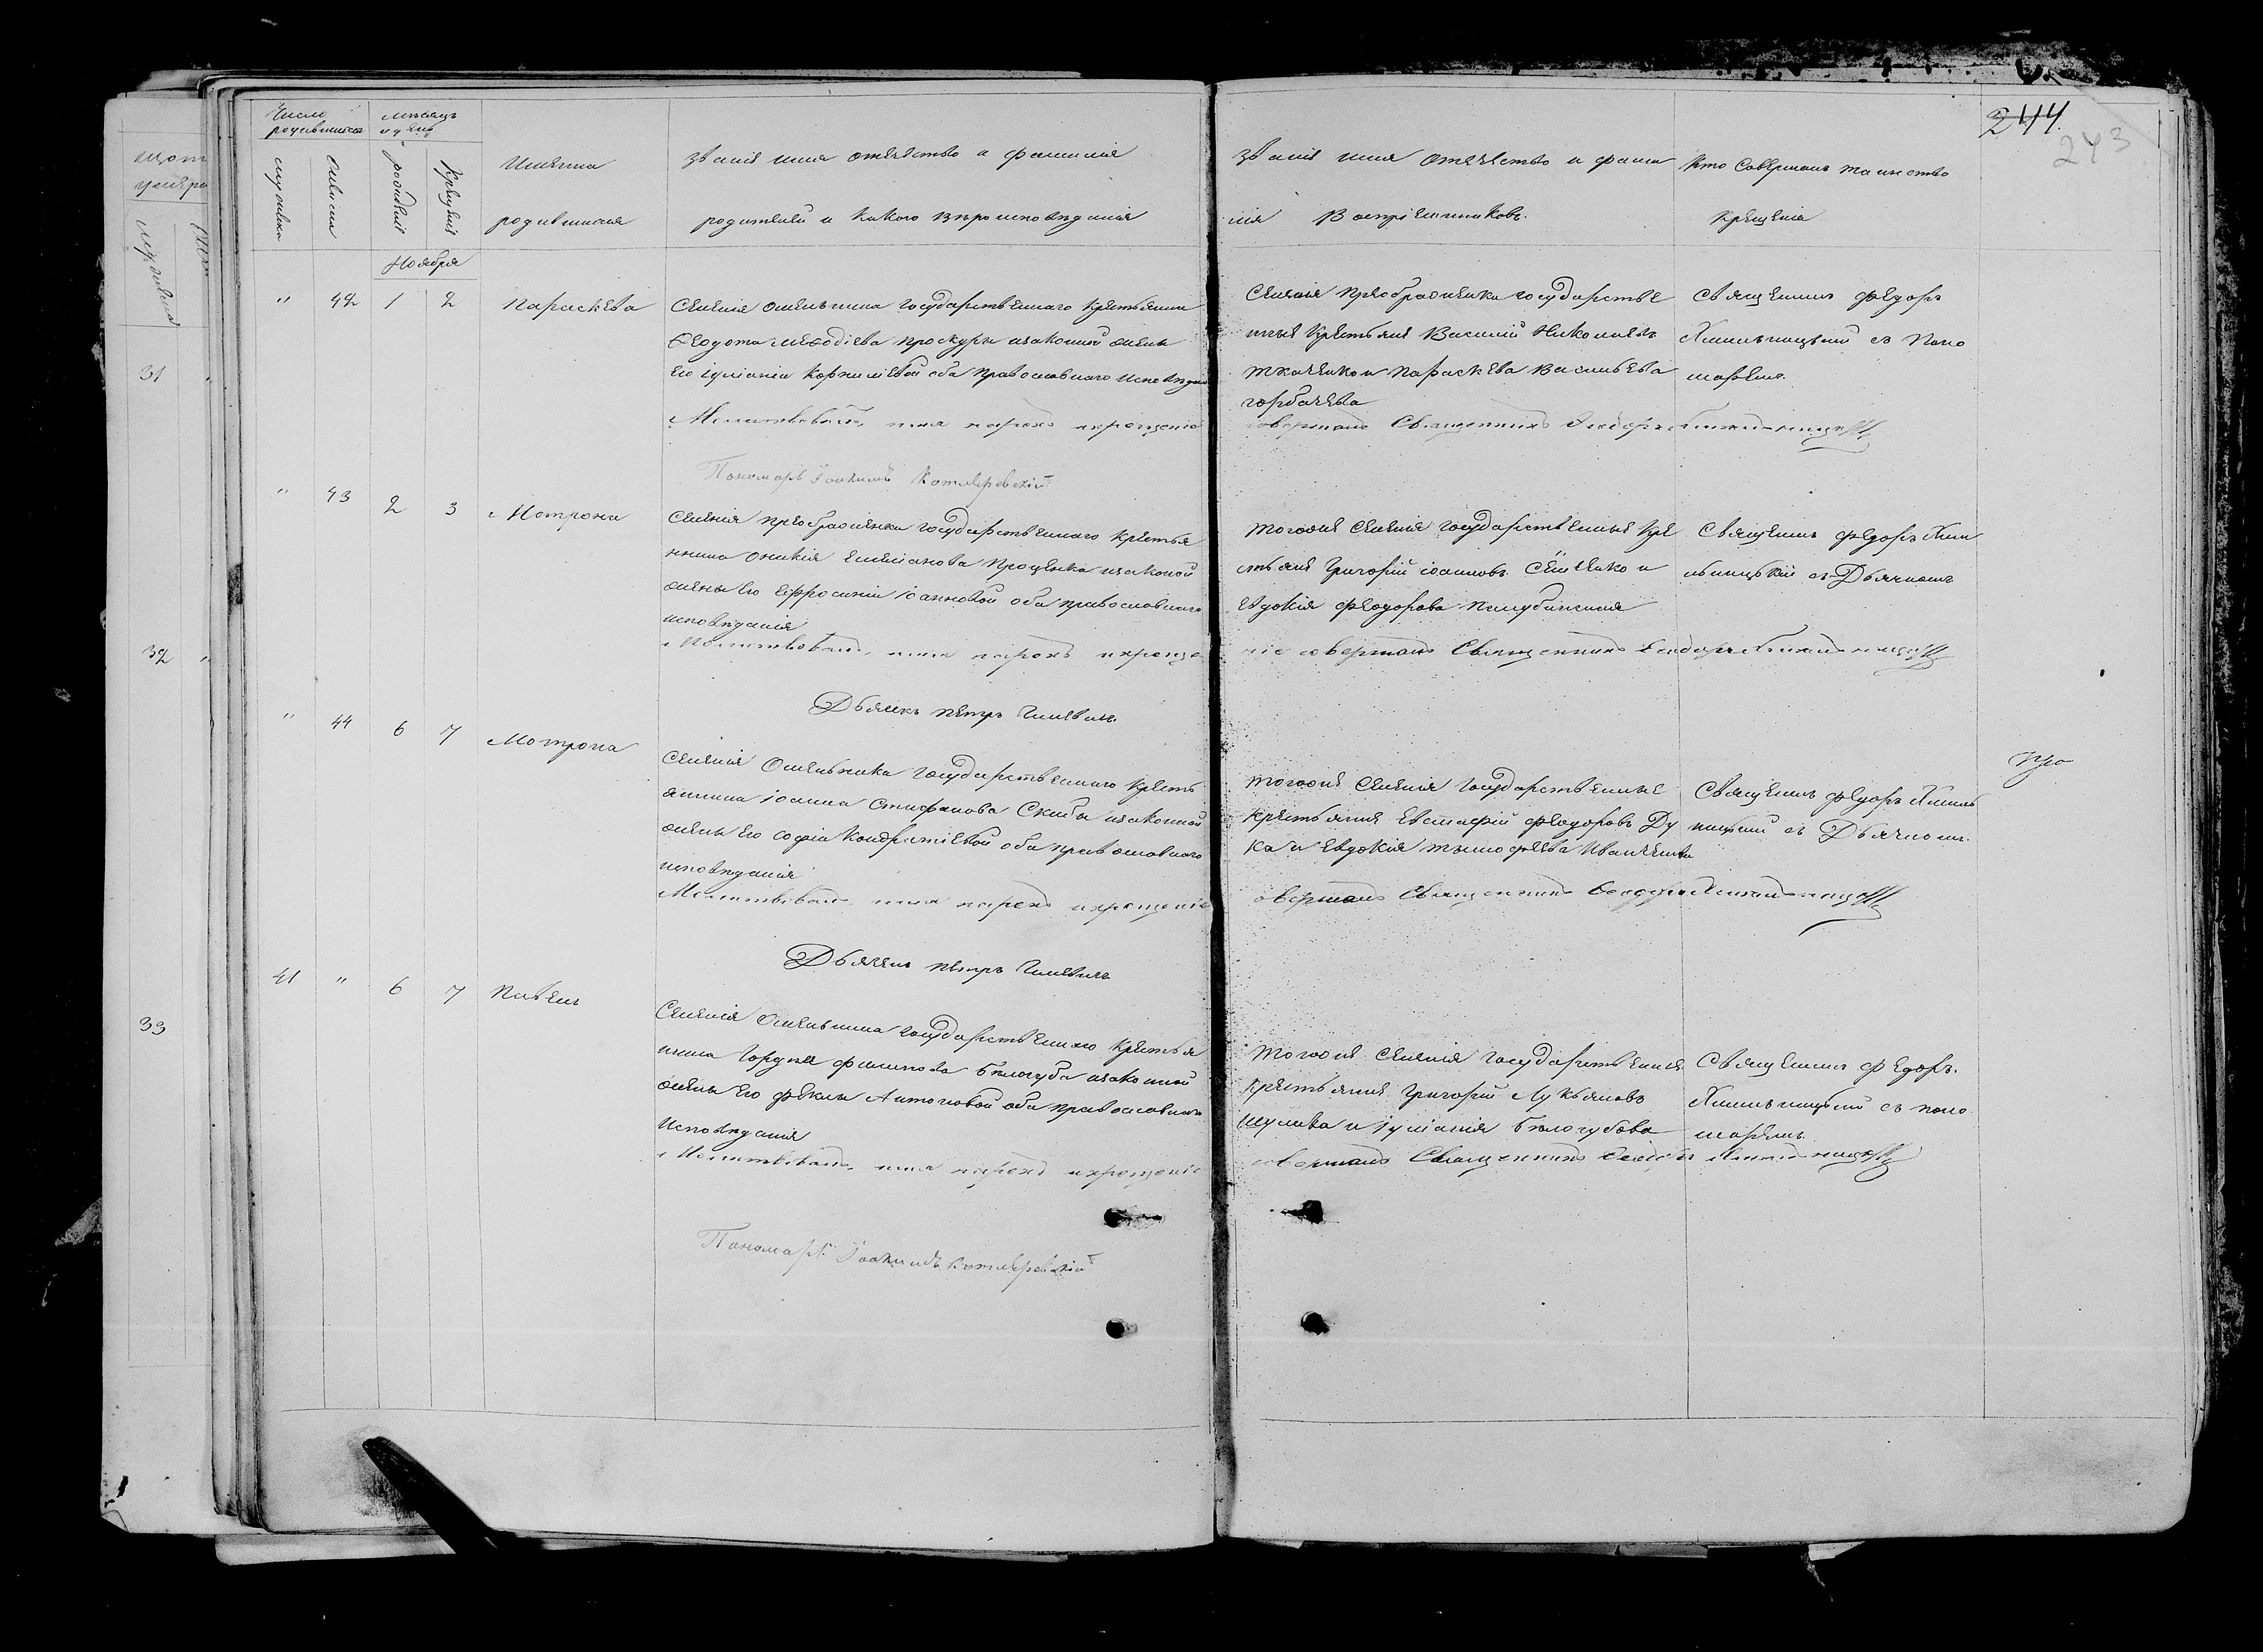 Число родившихся
месяцъ и день
мужска
женска
рождения
крещения
Имена
родившихся
званіе имя отечество и фамилія
родителей и какого вероисповеданія
званіе имя отечество и фами
лія Воспріемниковъ.
кто Совершалъ таинство
крещенія
244
243
Ноября
" 42 1 2 Параскева
Селенія государственнаго крестьянина
Феодота Меѳодіева проскуры изаконной жены
его іуліаніи Корниліевой оба православного исповедан
Молитвовалъ, имя нарекъ икрещеніе
Пономарь Іоакимъ Котляревскій
Селенія преображенки государстве
нные крестьяне Василий Николаевъ
ткаченко и параскева васильева
горбачева
совершалъ Священникъ Феодоръ
Священникъ федоръ
съ поно
марем.
" 43 2 3 Мотрона
Селенія преображенки государственнаго крестья
нина Оникія емелианова проценка изаконой
жены его ефросиніи іоанновой оба православнаго
исповеданія
Молитвовалъ, имя нарекъ икреще
Дьячекъ петръ
тогоже селенія государственные кре
стьяне григорий іоанновъ и
евдокія феодорова
ніе совершалъ Священникъ Феодоръ
Священникъ федоръ
съ Дьячкомъ
" 44 6 7 Мотрона
селенія государственнаго кресть
янина іоанна стефанова Скибы изаконной
жены его софіи кондратіевой оба православнаго
исповеданія
Молитвовалъ имя нарекъ икрещеніе
Дьячекъ петръ
тогоже селенія государственные
крестьяне Евстафий феодоровъ Ду
ка и евдокія тимофеева иваненкова
совершалъ Священникъ Феодоръ
Священникъ федоръ
съ Дьячкомъ.
про
41 " 6 7 Павелъ
Селенія государственнаго крестья
нина гордея филипова белогуба изаконной
жены его феклы Антоновой оба православнаго
исповеданія
Молитвовалъ, имя нарекъ икрещеніе
Пономарь Іоакимъ Котляревскій
тогоже селенія государственные
крестьяне григорий Лукьяновъ
шулика и іуліанія белогубова
совершалъ Священникъ Феодоръ
Священникъ федоръ.
съ поно
марем.
31
32
33